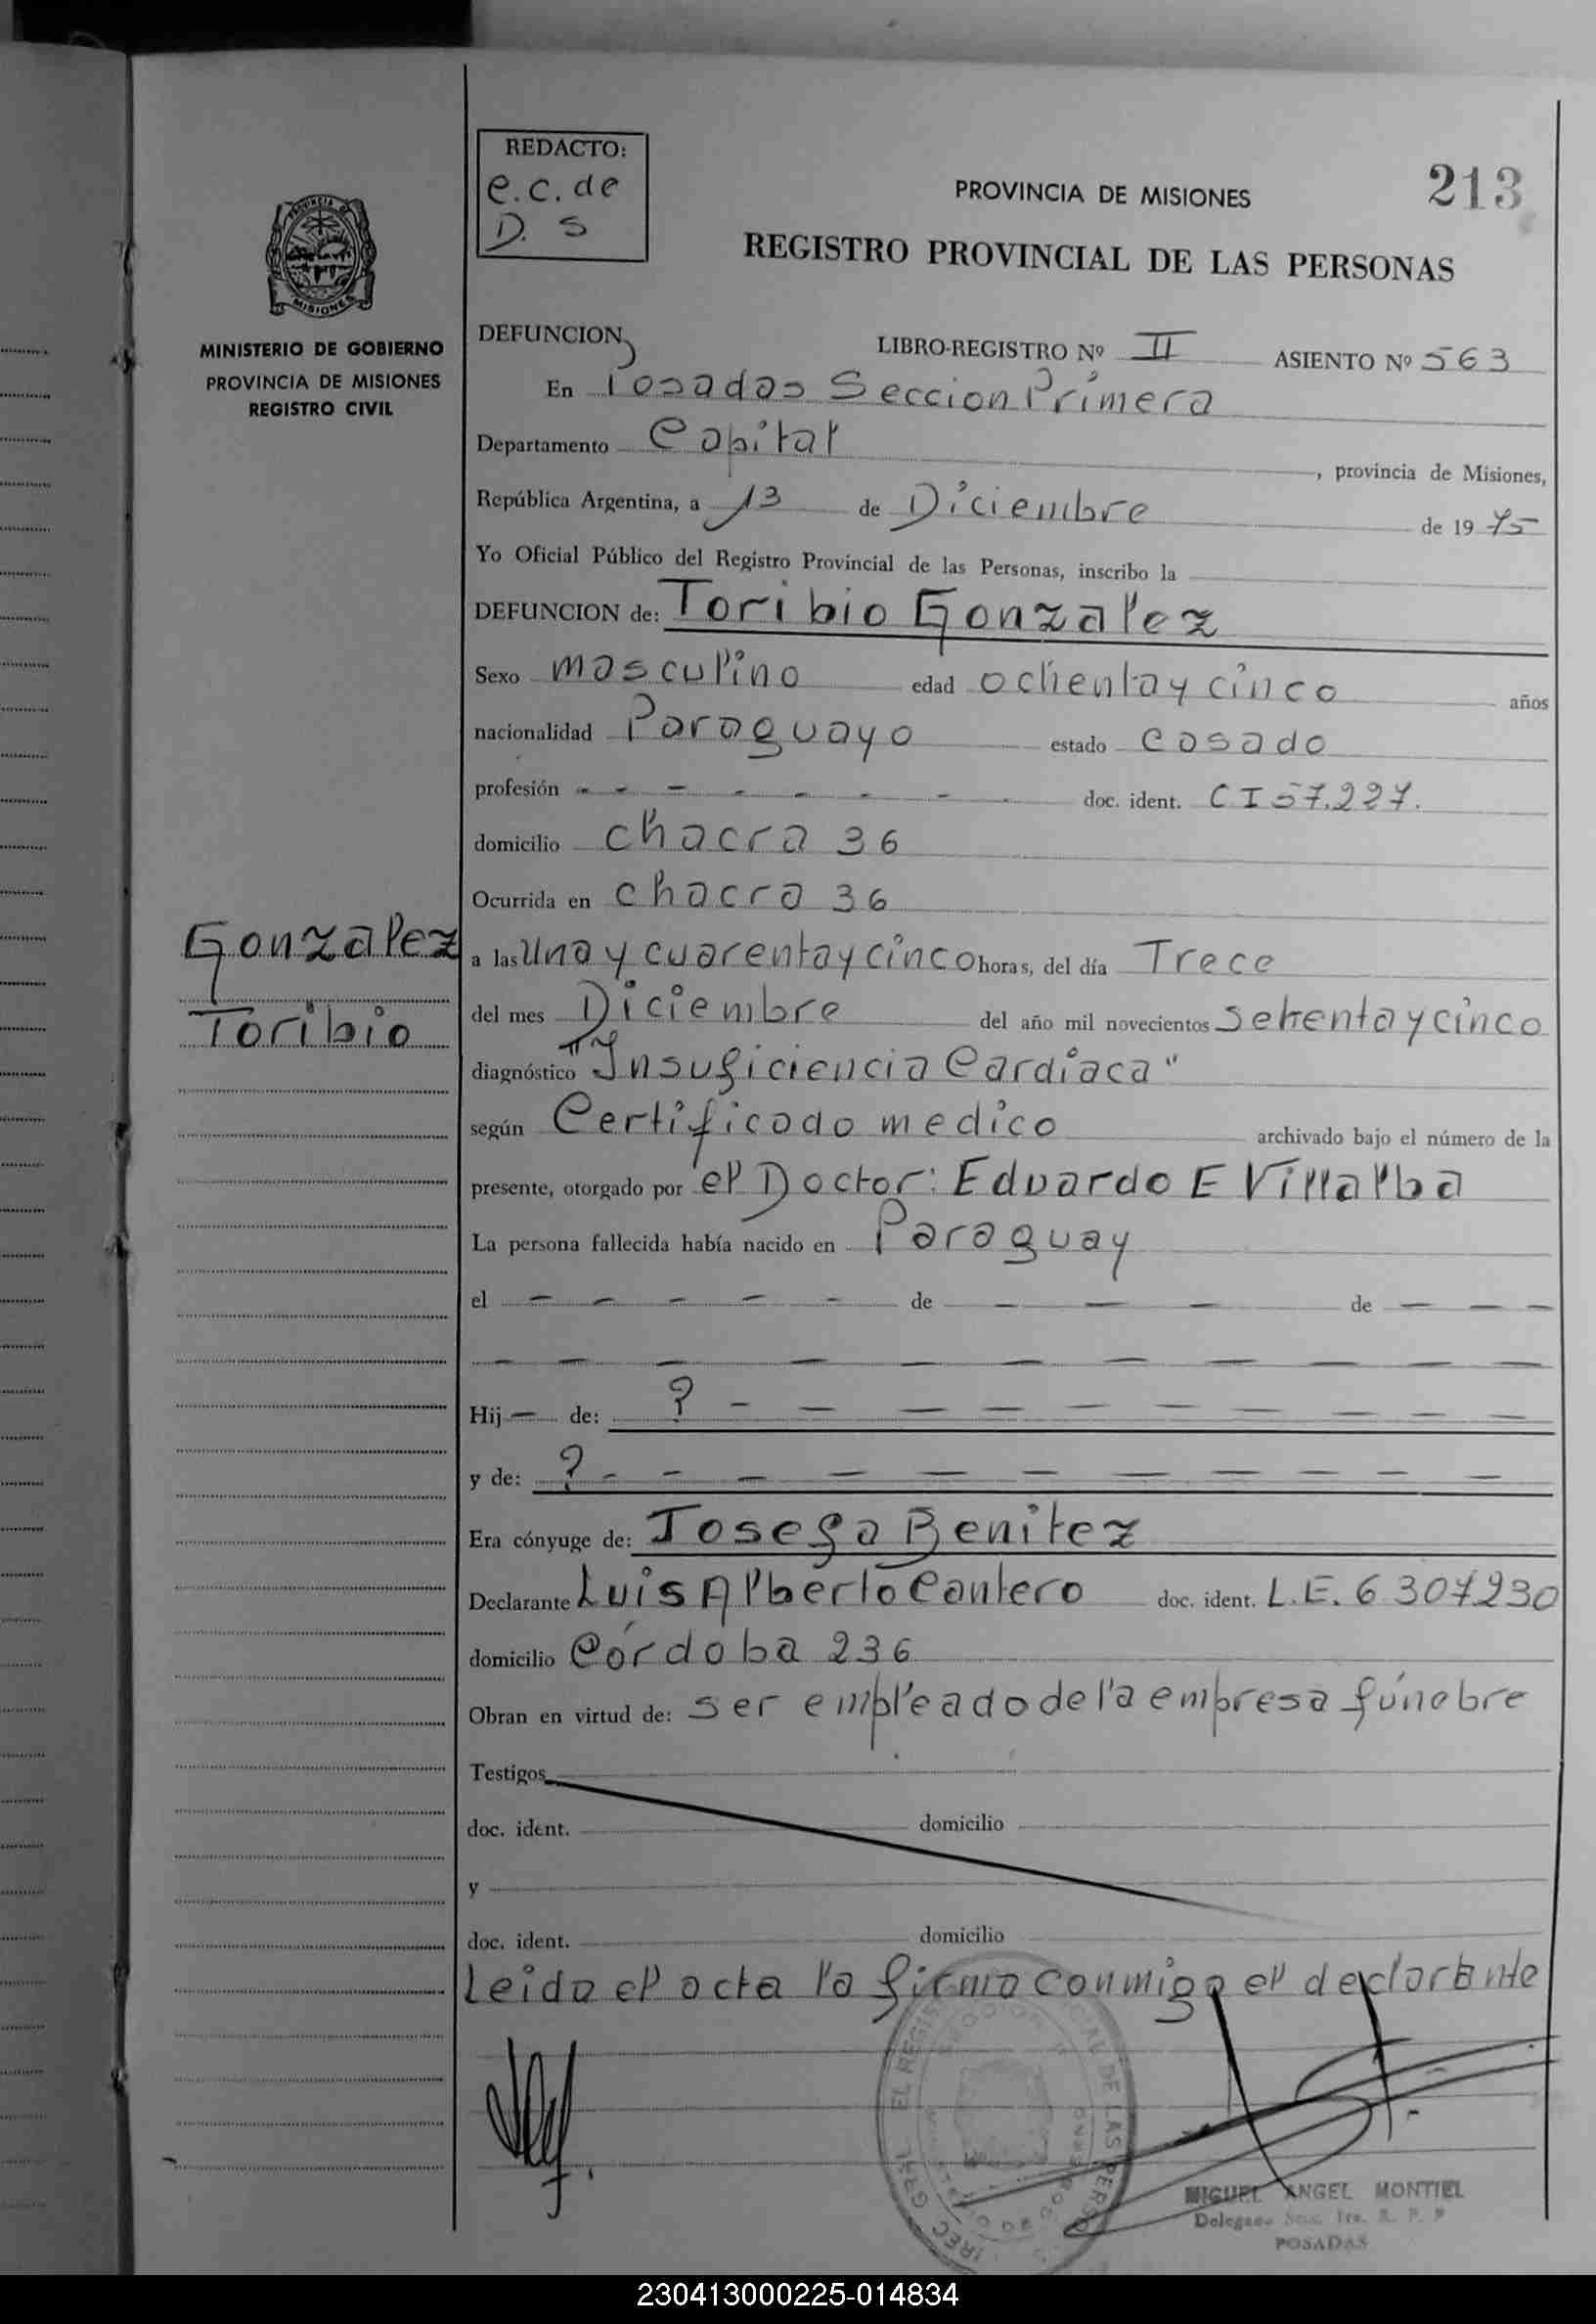 REDACTO:
e.c. de
D. S
PROVINCIA DE MISIONES
213
REGISTRO PROVINCIAL DE LAS PERSONAS
MISIONES
MINISTERIO DE GOBIERNO
PROVINCIA DE MISIONES
REGISTRO CIVIL
DEFUNCION
LIBRO-REGISTRO Nº II ASIENTO Nº 563
En Posadas Seccion Primera
Departamento Capital, provincia de Misiones,
República Argentina, a 13 de Diciembre de 1975
Yo Oficial Público del Registro Provincial de las Personas, inscribo la
DEFUNCION de: Toribio Gonzalez
Sexo masculino edad ochenta y cinco años
nacionalidad Paraguayo estado casado
profesión - - - - - - - doc. ident. C I 57.227.
domicilio chacra 36
Ocurrida en chacra 36
Gonzalez
Toribio
a las Una y cuarenta y cinco horas, del día Trece
del mes Diciembre del año mil novecientos setenta y cinco
diagnóstico "Insuficiencia Cardíaca"
según Certificado medico archivado bajo el número de la
presente, otorgado por el Doctor: Eduardo E Villalba
La persona fallecida había nacido en Paraguay
el - - - - - de - - - de - - -
- - - - - - - - - - -
Hij - de: ? - - - - - - - - -
y de: ? - - - - - - - - - -
Era cónyuge de: Josefa Benitez
Declarante Luis Alberto Cantero doc. ident. L.E. 6 307230
domicilio Córdoba 236
Obran en virtud de: ser empleado de la empresa fúnebre
Testigos
doc. ident. domicilio
y
doc. ident. domicilio
Leida el acta la firma conmigo el declarante
MIGUEL ANGEL MONTIEL
POSADAS
230413000225-014834